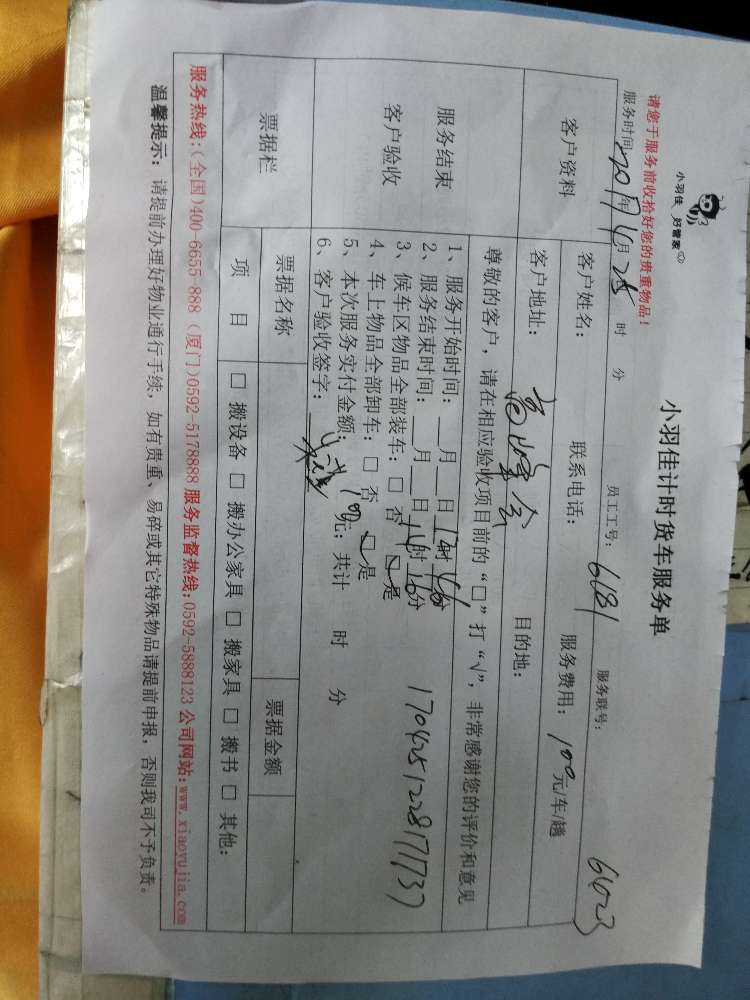 小羽佳 好管家
请您于服务前收拾好您的贵重物品！
小羽佳计时货车服务单
服务时间: 2017年4月25 时 分 员工工号: 6181 服务联号: 6023
客户资料
客户姓名: 联系电话: 服务费用: 100元/车/趟
客户地址: 目的地:
尊敬的客户，请在相应验收项目前的“□”打“√”，非常感谢您的评价和意见
服务结束
客户验收
1、服务开始时间: __月__日 时 分
2、服务结束时间: __月__日14时16分
3、候车区物品全部装车: □ 否 ☑是
4、车上物品全部卸车: □ 否 ☑是
5、本次服务实付金额: 100元; 共计 时 分
6、客户验收签字:
1704251228171737
票据栏
票据名称 票据金额
项 目 □ 搬设备 □ 搬办公家具 □ 搬家具 □ 搬书 □ 其他:
服务热线:(全国)400-6655-888 (厦门)0592-5178888 服务监督热线:0592-5888123 公司网站:www.xiaoyujia.com
温馨提示: 请提前办理好物业通行手续，如有贵重、易碎或其它特殊物品请提前申报，否则我司不予负责。